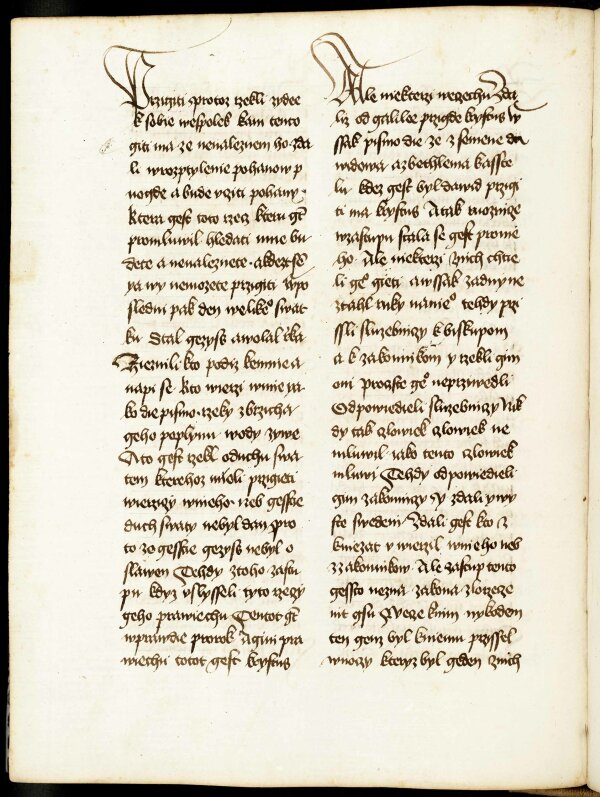 Przigiti protoz rzekli zidee
k sobie wespolek kam tento
giti ma ze nenaleznem ho zda
li w rozptylenie pohanow p
nogde a bude vziti pohany
Ktera gest toto rzecz kteru gt
promluwil hledati mne bu
dete a nenaleznete a kdez sē
ya wy nemozete przigiti w po
sledni pak den welikeo swat
ku Stal gezyss a wolal rzka
Zieznili kto podiz kemnie a
napi se kto wierzi w mie ya
ko die pismo rzeky z brzicha
geho poplynu wody zywe
A to gest rzekl o duchu swa
tem kterehoz mioli przigieti
wierzizy w nieho neb gesstie
duch swaty nebyl dan pro
to zo gesstie gezyss nebyl o
slawen Tehdy z toho zastu
pu kdyz vslysseli tyto rzeczy
geho prawiechu Tentot gt
w prawdie prorok A gini pra
wiechu totot gest krystus
Ale niekterzi wecechu zda
liz od galilee przigde krystus w
ssak pismo die ze z semene da
widowa a z bethlema kasste
lu kdez gest byl dawid przigi
ti ma krystus A tak ruoznize
w zastupu stala se gest pronie
ho Ale niekterzi z nich chtie
li geo gieti a wssak zadny ne
ztahl ruky na nieo tehdy przi
ssli sluzebnizy k biskupom
a k zakonnikom y rzekli gim
oni Proczste geo neprziwedli
Odpowiedieli sluzebnizy Nik
dy tak czlowiek czlowiek ne
mluwil iako tento czlowiek
mluwi Tehdy odpowiedieli
gim zakonnizy y zdali y wy
ste swedeni Zdali gest kto z
kniezat v wierzil w nieho neb
z zakonnikow Ale zastup tento
gessto nezna zakona zlorzecze
nit gsu Wecze k nim nykodem
ten genz byl k niemu przissel
w noczy kteryz byl geden z nich